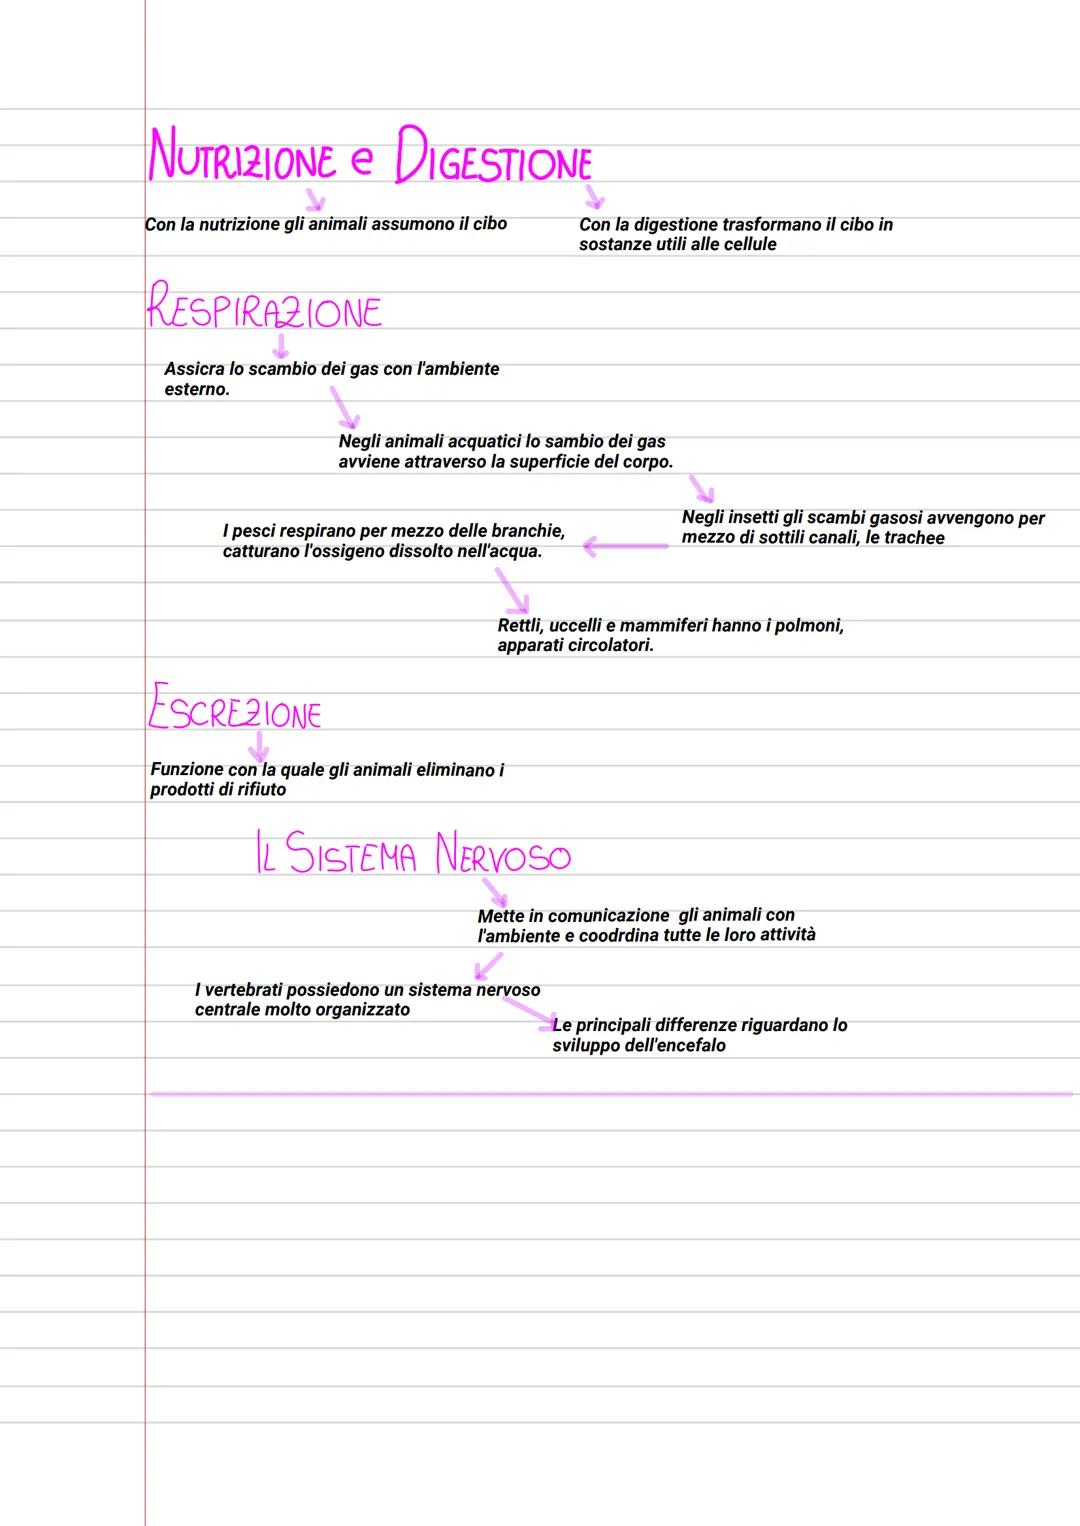 NUTRIZIONE e DIGESTIONE
Con la nutrizione gli animali assumono il cibo
Con la digestione trasformano il cibo in
sostanze utili alle cellule
RESPIRAZIONE
Assicra lo scambio dei gas con l'ambiente
esterno.
Negli animali acquatici lo sambio dei gas
avviene attraverso la superficie del corpo.
Negli insetti gli scambi gasosi avvengono per
mezzo di sottili canali, le trachee
I pesci respirano per mezzo delle branchie,
catturano l'ossigeno dissolto nell'acqua.
Rettli, uccelli e mammiferi hanno i polmoni,
apparati circolatori.
ESCREZIONE
Funzione con la quale gli animali eliminano i
prodotti di rifiuto
IL SISTEMA NERVOSO
Mette in comunicazione  gli animali con
l'ambiente e coodrdina tutte le loro attività
I vertebrati possiedono un sistema nervoso
centrale molto organizzato
Le principali differenze riguardano lo
sviluppo dell'encefalo